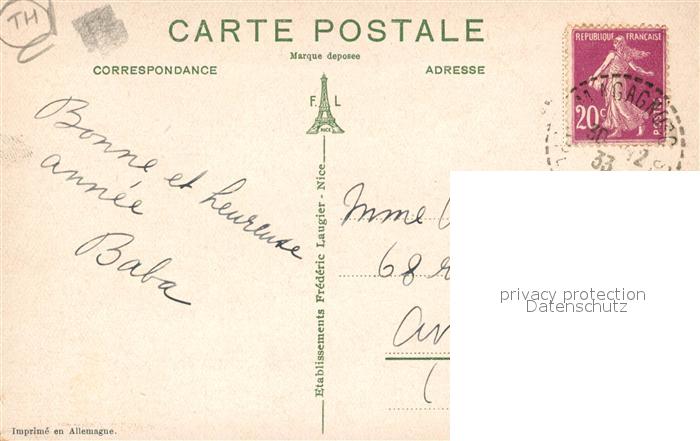 TH
CARTE POSTALE
Marque deposee
CORRESPONDANCE
ADRESSE
F L
NICE
REPUBLIQUE FRANÇAISE
20c
POSTES
30 12
33
Bonne et heureuse
année
Baba
Etablissements Frédéric Laugier - Nice
Mme
68
privacy protection
Datenschutz
Imprimé en Allemagne.